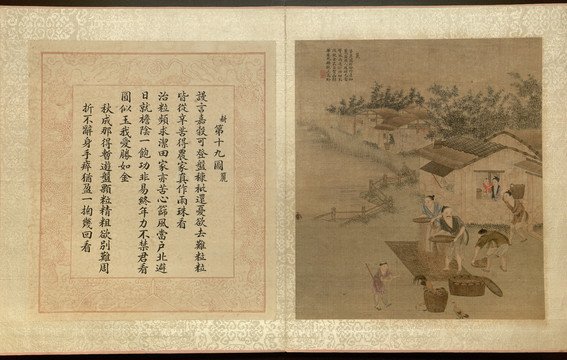 耕第十九圖 籭
謾言嘉穀可登盤糠秕還憂欲去難粒粒
皆從辛苦得農家真作雨珠看
治粒頻求潔田家亦苦心篩風當户北避
日就檐陰一飽功非易終年力不禁君看
圓似玉我愛勝如金
秋成那得暫遊盤顆粒精粗欲别難周
折不辭身手瘁猶盈一掬幾回看